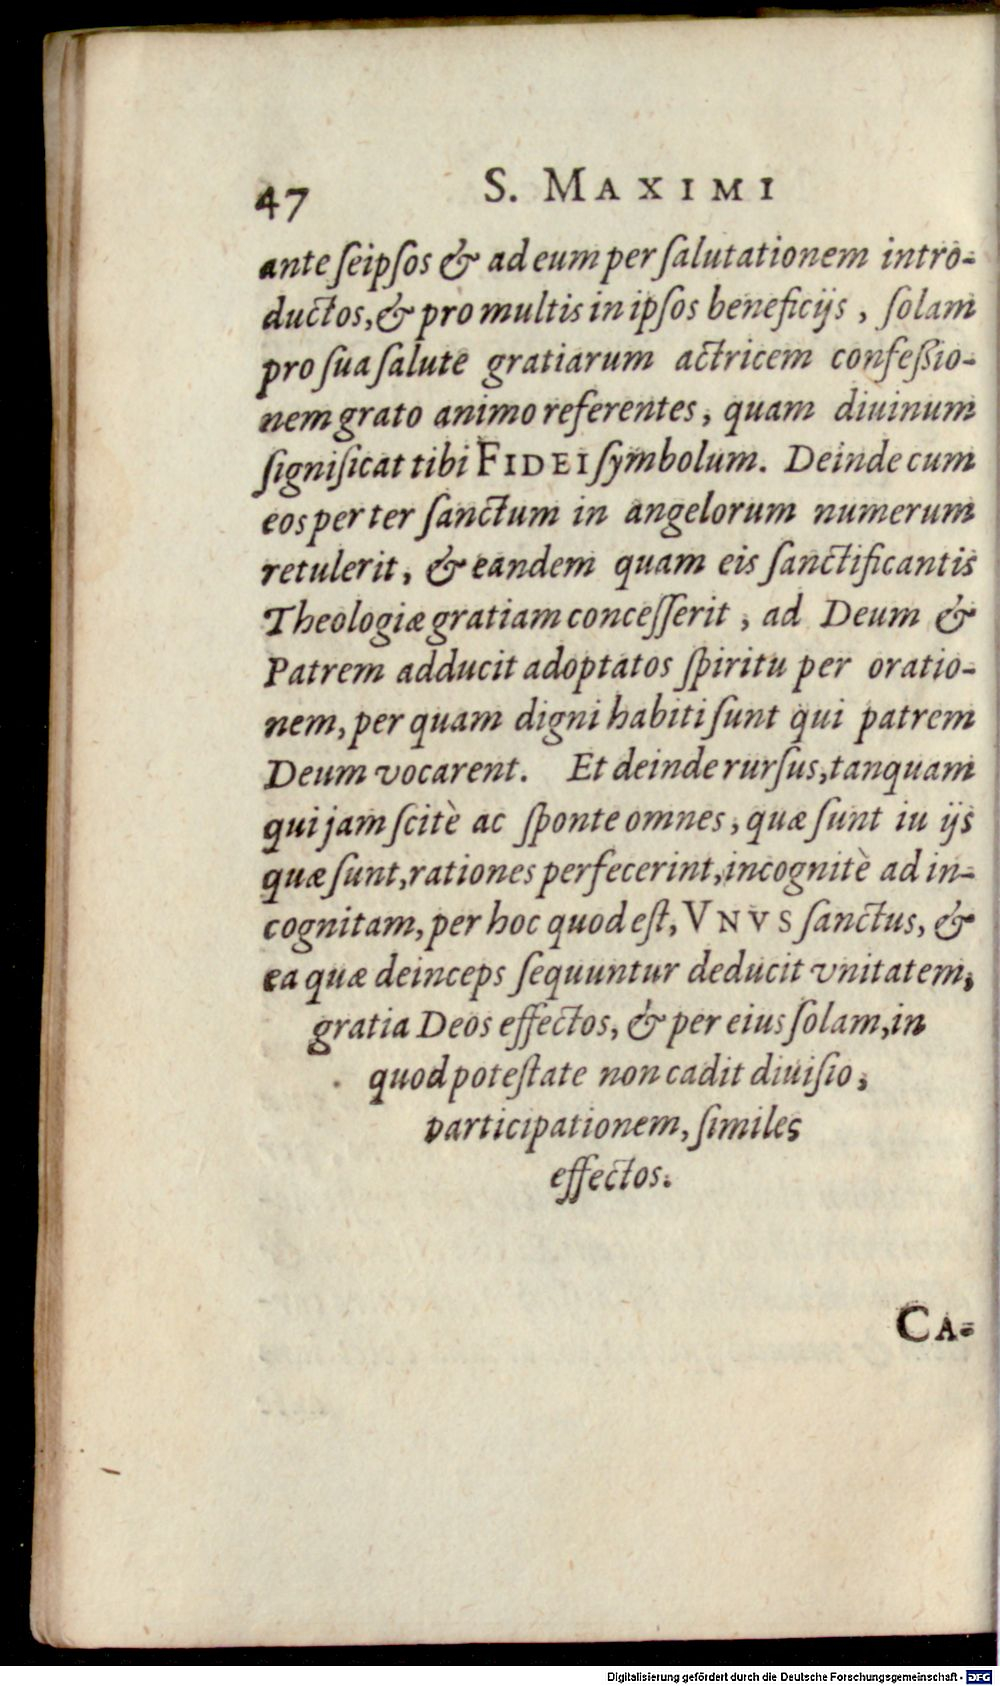 47 S. MAXIMI
ante ſeipſos & ad eum per ſalutationem intro-
ductos, & pro multis in ipſos beneficijs, ſolam
pro ſua ſalute gratiarum actricem confeßio-
nem grato animo referentes, quam diuinum
ſigniſicat tibi FIDEI ſymbolum. Deinde cum
eos per ter ſanctum in angelorum numerum
retulerit, & eandem quam eis ſanctificantis
Theologiæ gratiam conceſſerit, ad Deum &
Patrem adducit adoptatos ſpiritu per oratio-
nem, per quam digni habiti ſunt qui patrem
Deum vocarent. Et deinde rurſus, tanquam
qui jam ſcitè ac ſponte omnes, quæ ſunt iu ijs
quæ ſunt, rationes perfecerint, incognitè ad in-
cognitam, per hoc quod eſt, VNVS ſanctus, &
ea quæ deinceps ſequuntur deducit vnitatem,
gratia Deos effectos, & per eius ſolam, in
quod poteſtate non cadit diuiſio,
participationem, ſimiles
effectos.
CA-
Digitalisierung gefördert durch die Deutsche Forschungsgemeinschaft - DFG